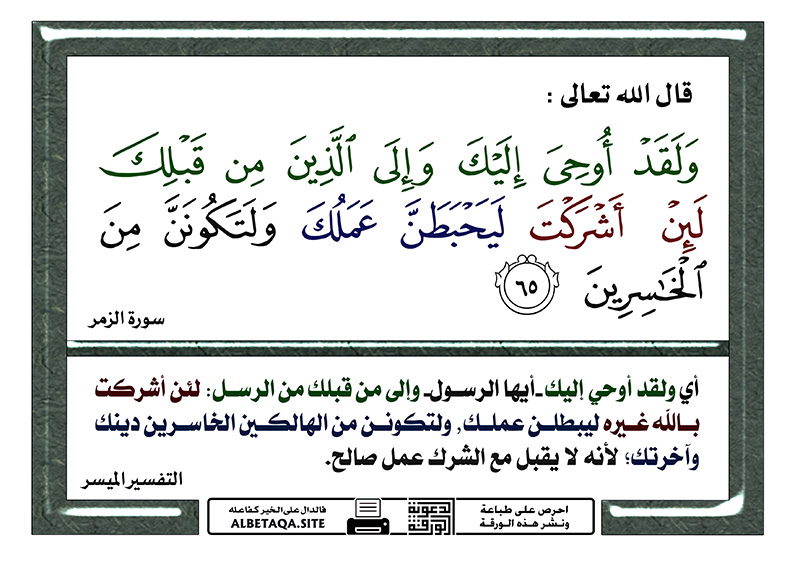 قال الله تعالى :
وَلَقَدْ أُوحِيَ إِلَيْكَ وَإِلَى ٱلَّذِينَ مِن قَبْلِكَ
لَئِنْ أَشْرَكْتَ لَيَحْبَطَنَّ عَمَلُكَ وَلَتَكُونَنَّ مِنَ
ٱلْخَٰسِرِينَ ٦٥
سورة الزمر
أي ولقد أوحي إليك ـ أيها الرسول ـ وإلى من قبلك من الرسل: لئن أشركت
بالله غيره ليبطلن عملك, ولتكونن من الهالكين الخاسرين دينك
وآخرتك؛ لأنه لا يقبل مع الشرك عمل صالح.
التفسير الميسر
احرص على طباعة
ونشر هذه الورقة
الدعوية
الورقة
فالدال على الخير كفاعله
ALBETAQA.SITE